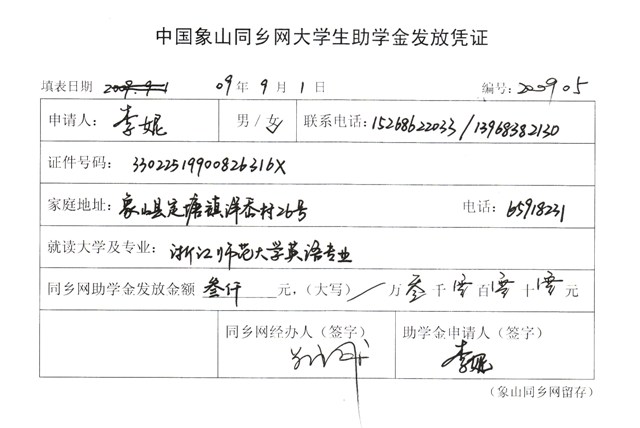 中国象山同乡网大学生助学金发放凭证
填表日期 2009.9.1 09年9月1日 编号:200905
申请人: 李妮 男/女 联系电话:15268622033/13968382130
证件号码: 33022519900826316X
家庭地址:象山县定塘镇洋岙村26号 电话:65918231
就读大学及专业:浙江师范大学英语专业
同乡网助学金发放金额 叁仟 元,(大写)/万叁千零百零十零元
同乡网经办人(签字) 助学金申请人(签字)
李妮
(象山同乡网留存)